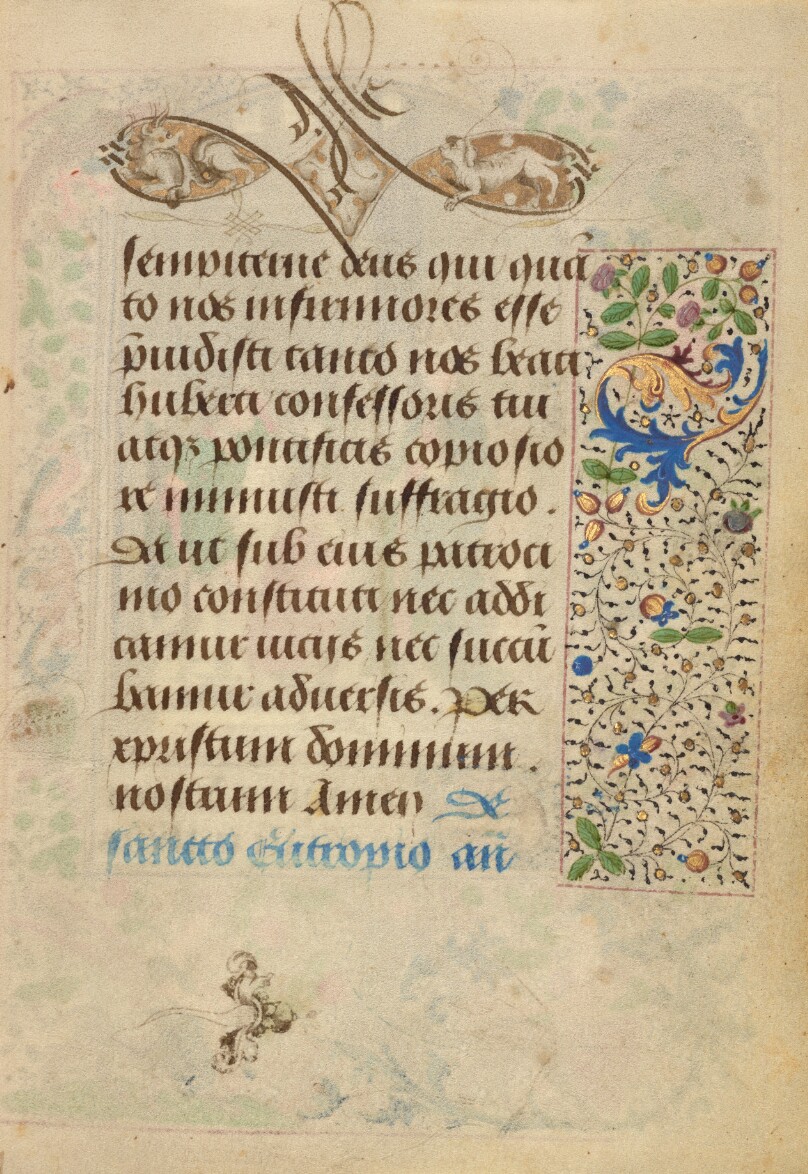 sempiterne deus qui quā
to nos infirmiores esse
p̄uidisti tanto nos beati
huberti confessoris tui
atqꝫ pontificis copiosio
re muniisti suffragio.
Da ut sub eius patroci
nio constituti nec addi
camur iuciis nec succū
bamur aduersis. PER
xpristum dominum.
nostrum Amen De
sancto Eutropio añ